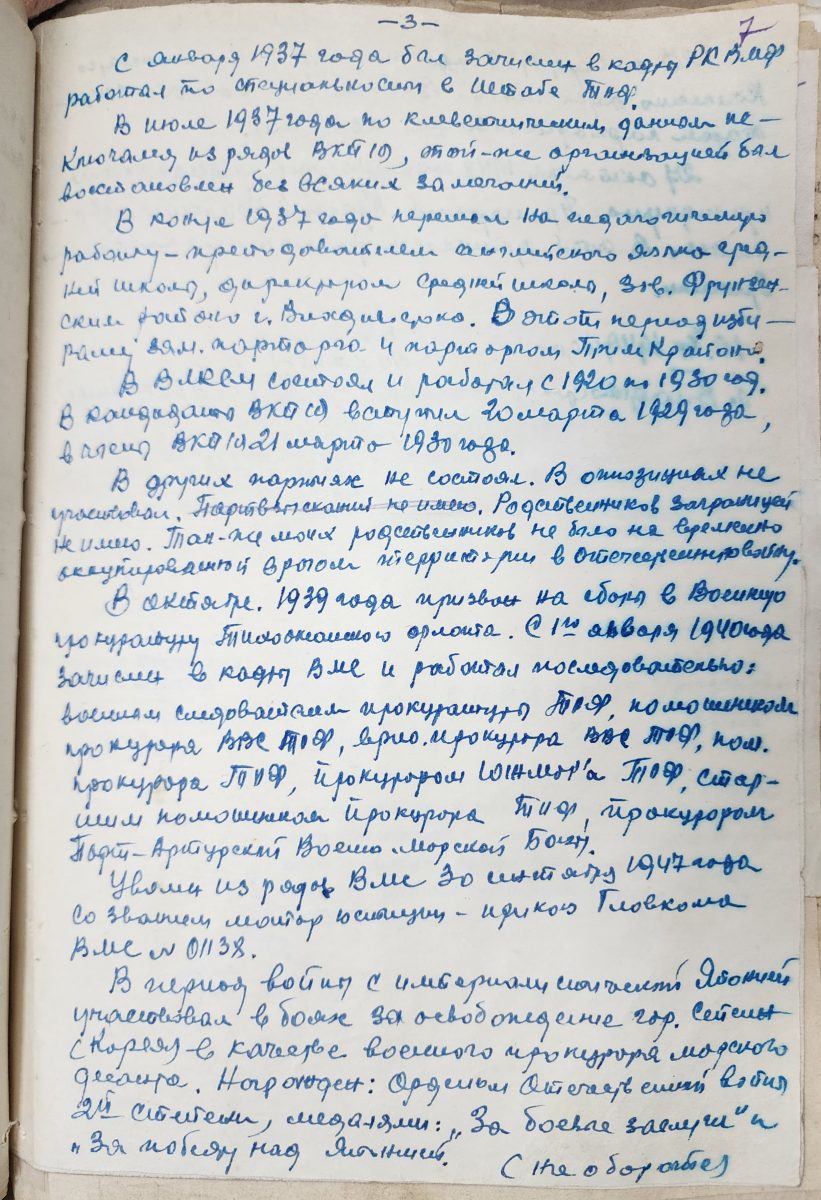 -3-
7
С января 1937 года был зачислен в кадры РКВМФ
работал по специальности в штабе ТОФ.
В июле 1937 года по клеветническим данным ис-
ключался из рядов ВКП(б), этой-же организацией был
восстановлен без всяких замечаний.
В конце 1937 года перешел на педагогическую
работу - преподавателем английского языка сред-
ней школы, директором средней школы, зав. Фрунзен-
ским районо г. Владивостока. В этот период изби-
рался зам. парторга и парторгом ПримКрайоно.
В ВЛКСМ состоял и работал с 1920 по 1930 год.
В кандидаты ВКП(б) вступил 20 марта 1929 года,
в члены ВКП(б) 21 марта 1930 года.
В других партиях не состоял. В оппозициях не
участвовал. Партвзысканий не имею. Родственников заграницей
не имею. Так-же моих родственников не было на временно
оккупированной врагом территории в отечественную войну.
В октябре. 1939 года призван на сборы в Военную
прокуратуру Тихоокеанского флота. С 1го января 1940 года
зачислен в кадры ВМС и работал последовательно:
военным следователем прокуратуры ТОФ, помошником
прокурора ВВС ТОФ, врио. прокурора ВВС ТОФ, пом.
прокурора ТОФ, прокурором Южмор'а ТОФ, стар-
шим помошником прокурора ТОФ, прокурором
Порт-Артурской Военно Морской Базы.
Уволен из рядов ВМС 30 сентября 1947 года
со званием майор юстиции - приказ Главкома
ВМС № 01138.
В период войны с империалистической Японией
участвовал в боях за освобождение гор. Сейсин
(Корея) в качестве военного прокурора морского
десанта. Награжден: Орденом Отечественной войны
2й степени, медалями: „За боевые заслуги" и
„За победу над Японией".
(на обороте)